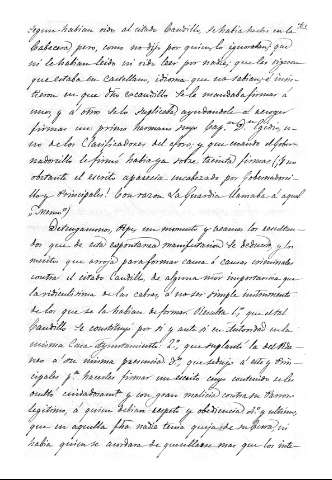 segun habian oido al citado Caudillo, se habia hecho en la
Cabecera; pero, como no dijo por quien, lo ignoraban, que
ni le habian leido ni oido leer por nadie, que les digeron
que estaba en castellano, idioma que no sabian, é insis-
tieron en que otro excaudillo se lo mandaba firmar á
unos, y á otros se lo suplicaba, ayudandole á acoger
firmas un primo hermano suyo Cap.n D.n u-
no de los Clasificadores del aforo; y que cuando el Gober-
nadorcillo le firmó habia ya sobre treinta firmas (¡y no
obstante el escrito aparecia encabezado por Gobernador-
llo y Principales! Con razon La Guardia llamaba á aquel
Memo!)
Detengamonos, Sor, un momento y veamos los resulta-
dos que de esta espontanea manifestacion se deducen, y los
meritos que arroja para formar causa ó causas criminales
contra el citado Caudillo, de alguna mor importancia que
la ridiculisima de las cabras, á no ser simple instrumento
de los que se la habian de formar. Resulta 1.o que el tal
Caudillo se constituyó por sí y ante sí en Autoridad en la
misma Casa Ayuntamiento: 2.o que suplantó la del
á su misma presencia: 3.o que sedujo á este y Prin-
cipales p.a hacerles firmar un escrito cuyo contenido se les
ocultó cuidadosam.te y con gran malicia contra su Parro-
legitimo, á quien debian respeto y obediencia: 4.o y ultimo,
que en aquella fha nadie tenia queja de su Cura, ni
habia quien se acordara de querellarse mas que los inte-